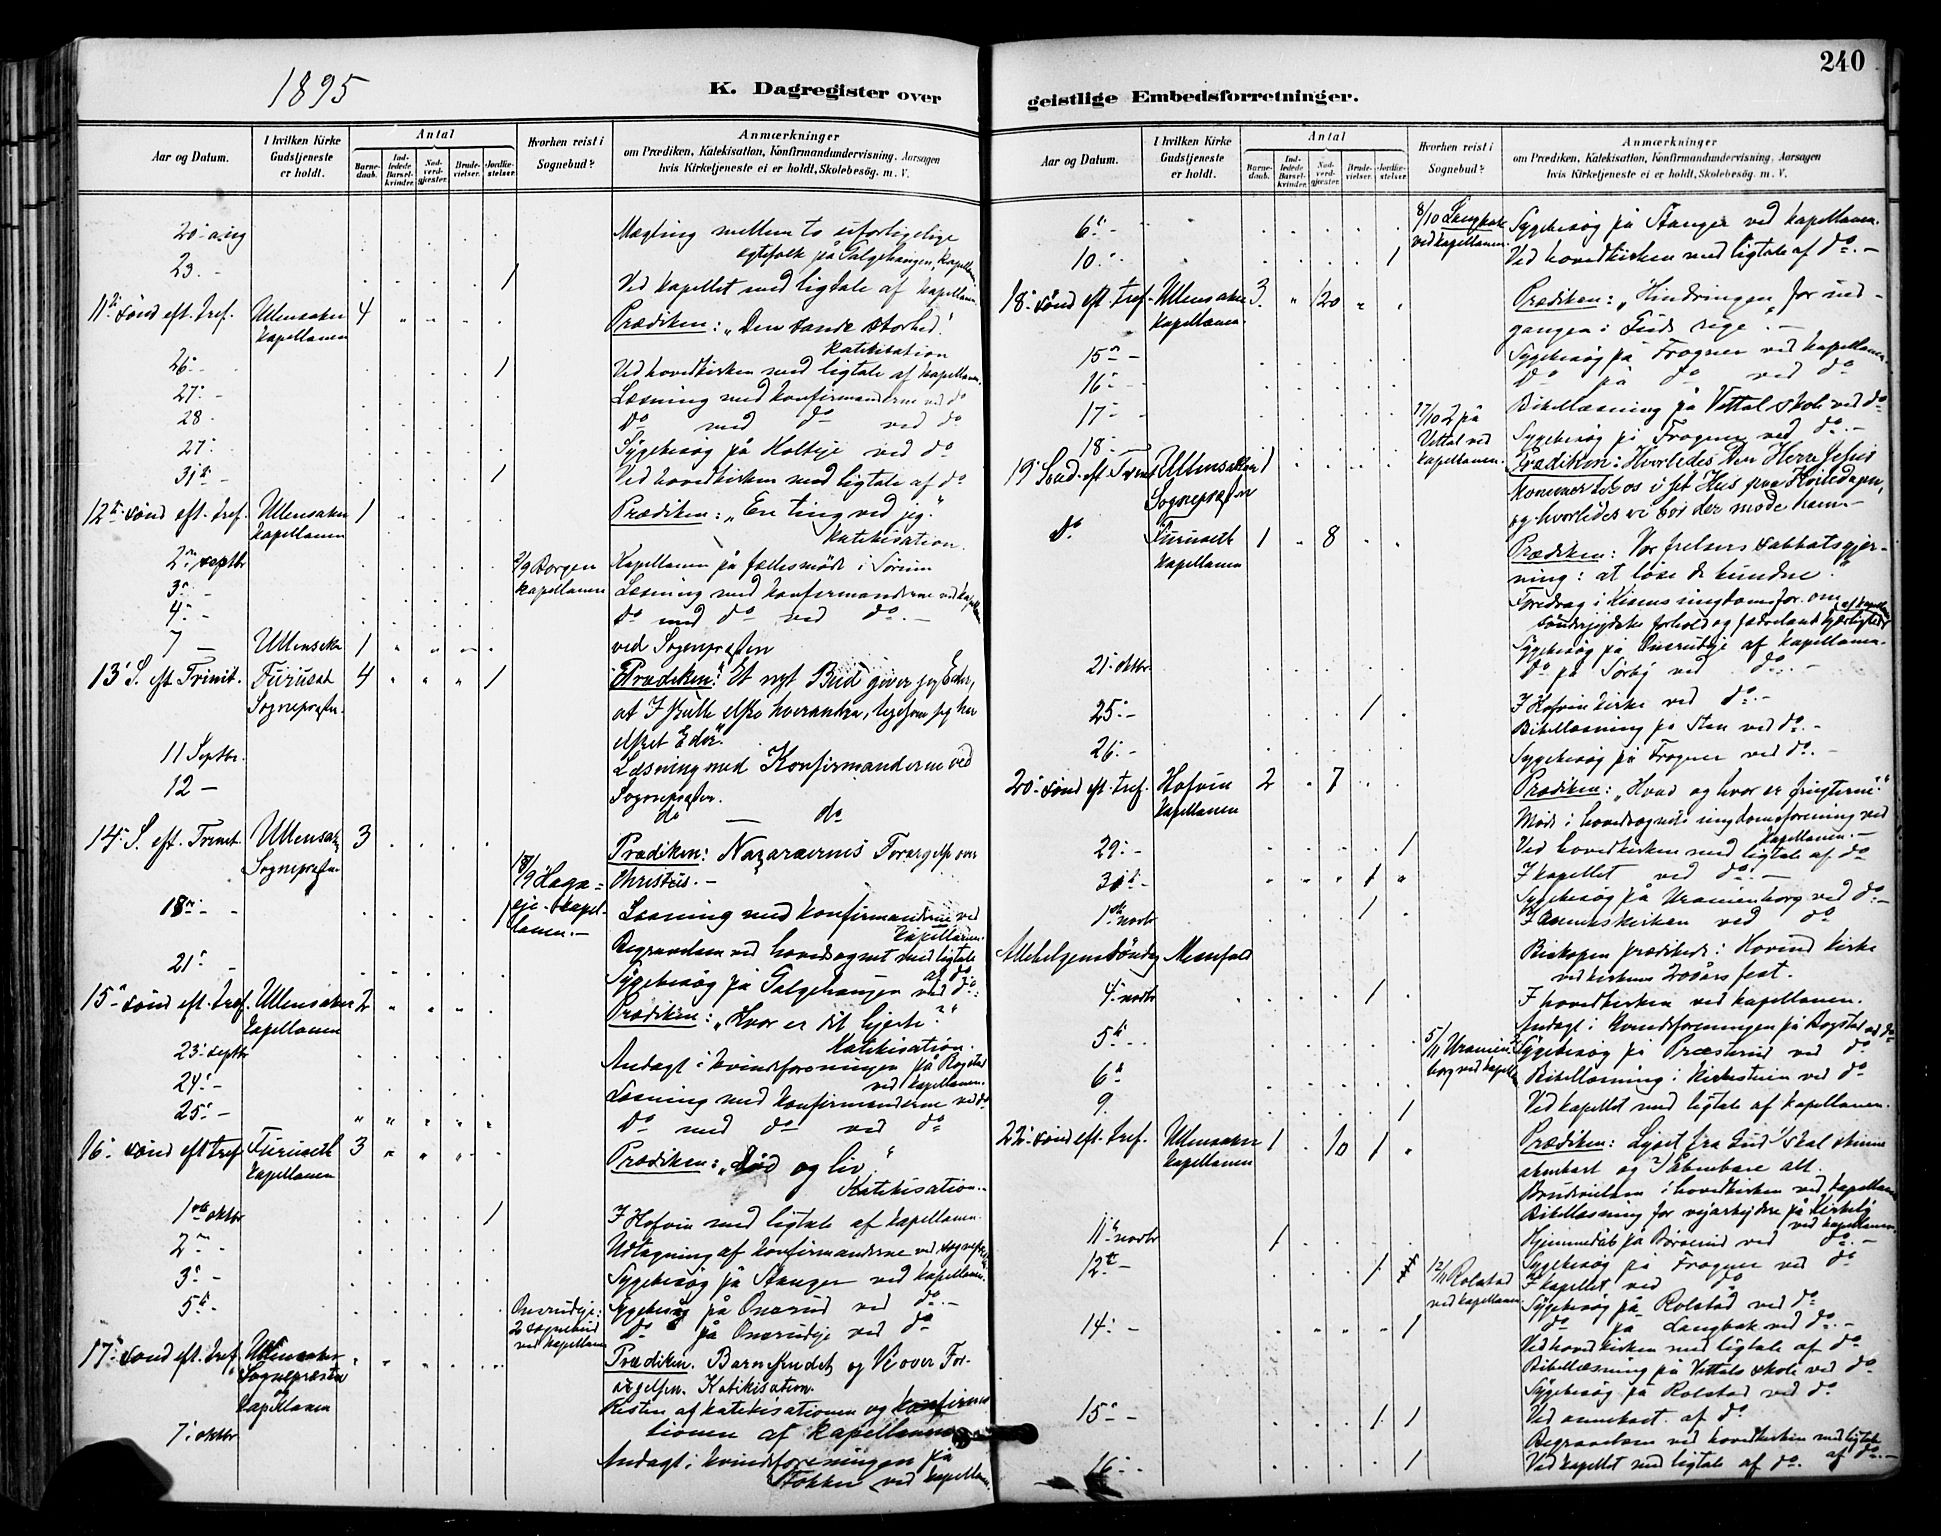 240
1895
K. Dagregister over
geistlige Embedsforretninger.
Aar og Datum.
I hvilken Kirke Gudstjeneste er holdt.
Antal
Barnedaab.
Indledede Barselkvinder.
Nadverdgjester.
Brudevielser.
Jordfæstelser.
Hvorhen reist i Sognebud?
Anmærkninger
om Prædiken, Katekisation, Konfirmandundervisning, Aarsagen
hvis Kirketjeneste ei er holdt, Skolebesøg. m. V.
20. aug Mægling mellem to uforligelige
ægtefolk på Galgehaugen, kapellanen
23. - 1 Ved kapellet med ligtale af kapellanen.
11te sönd eft. tref. Ullensaker 4 Prædiken: "Den sande storhed."
kapellanen katekisation
26. 1 Ved hovedkirken med ligtale af kapellanen.
27. - Læsning med konfirmanderne ved do
28. do med do ved do
27. Sygebesøg på Holteje ved do
31te - 1 Ved hovedkirken med ligtale af do
12te sönd eft. tref. Ullensaker 1 Prædiken: "Ere ting ved jeg."
kapellanen katekisation.
2. septbr 2/9 Borgen Kapellanen på fællesmöde i Sörum
3. - kapellanen Læsning med konfirmanderne ved kapellanen
4. - do med do ved do. -
7 - Ullensaker 1 ved Sognepræsten
13. S. eft. Trinit. Furuset 4 1 Prædiken: Et nyt Bud giver jeg Eder,
Sognepræsten. at I skulle elske hverandre, ligesom jeg har
elsket Eder."
11 Septbr. Læsning med Konfirmanderne ved
12 - Sognepræsten.
do - do
14. S. eft. Trinit. Ullensaker 3 Prædiken: Nazaræernes Forargelse over
Sognepræsten 18/9 Haga= Christus. -
18. - 1 eje - kapellanen. - Læsning med konfirmanderne ved
kapellanen.
Begravelsen ved hovedsognet med ligtale
af do.
21. - Sygebesøg på Galgehaugen ved do.
15. sönd eft. tref. Ullensaker 2 Prædiken: "Hvor er dit hjerte?"
kapellanen Katekisation.
23. septbr Andagt i kvindforeningen på Rogstad
ved kapellanen.
24. - Læsning med konfirmanderne ved do
25. - do med do ved do
16. sönd eft tref. Furuseth 3 Prædiken: "Död og liv."
kapellanen Katekisation. -
1ste oktbr 1 I Hofvin med ligtale af kapellanen.
2. - Udtagning af konfirmanderne ved sognepræsten
3. - Sygebesøg på Stanger ved kapellanen.
5te - Onsrudeje: Sygebesøg på Onsrud ved do. -
2 sognebud do på Onsrudeje ved do
ved kapellanen
17. sönd eft. tref. Ullensaker Prædiken. Barnesindet og Ve over For-
Sognepræsten argelsen. Katekisation.
og kapellanen Resten af katekisationen og konfirma-
tionen af kapellanen
7. oktbr Andagt i kvindforeningen på
Stokker ved kapellanen.
6. 8/10 Langbak Sygebesøg på Stanger ved kapellanen.
ved kapellanen.
10. 1 Ved hovedkirken med ligtale af do. -
18. sönd eft. tref. Ullensaker 3 120 Prædiken: "Hindringen for ind-
kapellanen. gangen i Guds rige". -
15. - Sygebesøg på Frogner ved kapellanen
16. - do på do ved do
17. - 17/10 2 på Bibellæsning på Vettal skole ved do
18. - Vettal ved Sygebesøg på Frogner ved do. -
19. Sönd. eft. Trinit Ullensaker 1 kapellanen. Prædiken: Hvorledes Den Herre Jesus
Sognepræsten kommer til os i sit Hus paa Hviledagen,
og hvorledes vi bör der møde ham. -
do Furuseth 1 8 Prædiken: Vor frelsers sabbatsgjer-
kapellanen ning: at löse de bundne."
Foredrag i Kisens ungdomsfor. om
sönderjydske forhold og fædrelandskjærlighed af kapellanen
Sygebesøg på Onsrudeje af kapellanen.
21. oktbr do på Sörby ved do. -
25. - 1 I Hofvin kirke ved do. -
Bibellæsning på Sten ved do. -
26. - Sygebesøg på Frogner ved do. -
20. sönd eft. tref. Hofvin 2 7 Prædiken: "Hvad og hvor er frugterne."
kapellanen Møde i hovedsognets ungdomsforening ved
kapellanen. -
29. - 1 Ved hovedkirken med ligtale af do
30te - 1 I kapellet ved do. -
Sygebesøg på Uranienborg ved do. -
1ste novbr 1 I Annekskirken ved do
Allehelgenssöndag Messefald Biskopen prædikede i Hovind kirke
ved kirkens 200års fest.
4. novbr 1 I hovedkirken ved kapellanen.
Andagt i kvindforeningen på Rogstad ved do
5te - 5/11 Uranien- Sygebesøg på Præsterud ved do
6te borg ved kapellanen Bibellæsning i Kirkestuen ved do
9. 1 Ved kapellet med ligtale af kapellanen.
22. sönd eft. tref. Ullensaker 1 10 1 Prædiken: Lyset fra Gud skal skinne
kapellanen åbenbart og åbenbare alt.
Brudevielsen i hovedkirken ved kapellanen
Bibellæsning for vejarbejdere på Kirkeby
ved kapellanen.
11. novbr 1 Hjemmedåb på ved do. -
12te - 1 12/11 Rolstad Sygebesøg på Frogner ved do
ved kapellanen I kapellet ved do
Sygebesøg på Rolstad ved do
14. - 1 do på Langbak ved do. -
Ved hovedkirken med ligtale af do
Bibellæsning på Vettals skole ved do
Sygebesøg på Rolstad ved do
15. - 1 1 Vid annekset af do
Begravelsen ved hovedkirken med ligtale
af do. -
16. - 1 Ved kapellet med ligtale af do.